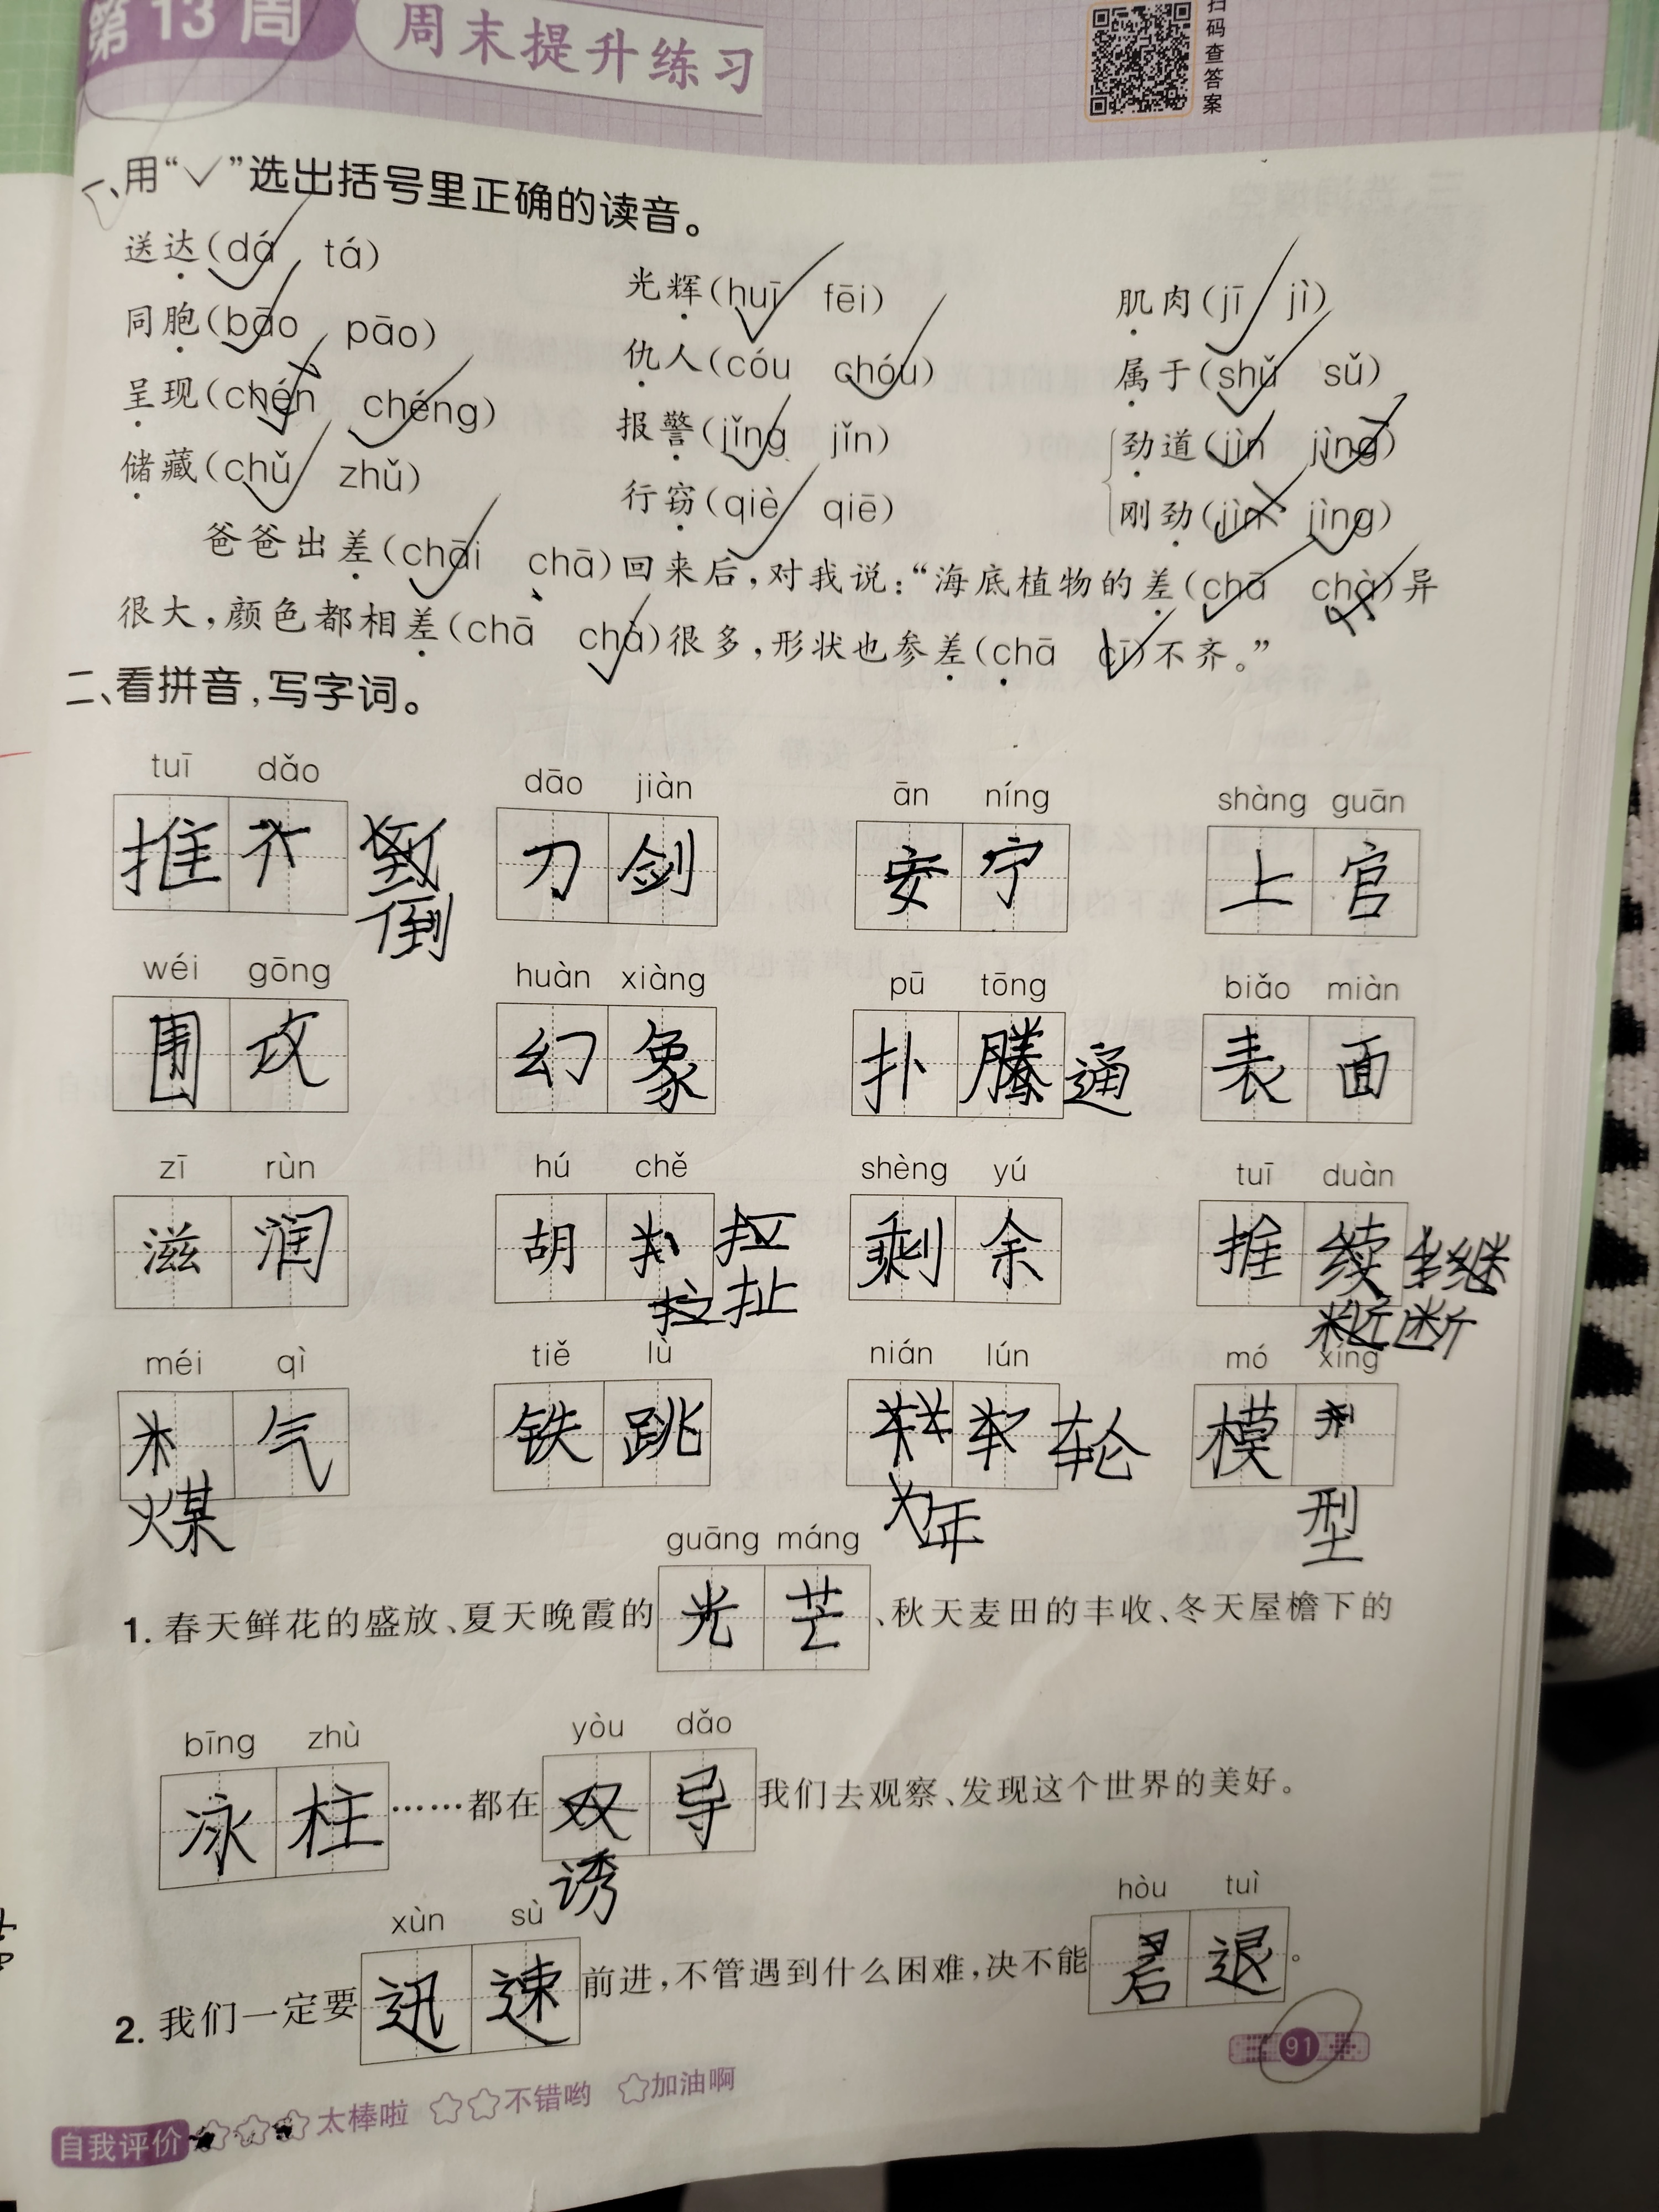 第13周 周末提升练习
扫码查答案
一、用“✓”选出括号里正确的读音。
送达(dá tá) 光辉(huī fēi) 肌肉(jī jì)
同胞(bāo pāo) 仇人(cóu chóu) 属于(shǔ sǔ)
呈现(chén chéng) 报警(jǐng jǐn) 劲道(jìn jìng)
储藏(chǔ zhǔ) 行窃(qiè qiē) 刚劲(jìn jìng)
爸爸出差(chāi chā)回来后,对我说:“海底植物的差(chā chà)异
很大,颜色都相差(chā chà)很多,形状也参差(chā cī)不齐。”
二、看拼音,写字词。
tuī dǎo dāo jiàn ān níng shàng guān
推 刀剑 安宁 上官
倒
wéi gōng huàn xiàng pū tōng biǎo miàn
围攻 幻象 扑 通 表面
zī rùn hú chě shèng yú tuī duàn
滋润 胡 剩余 推
扯 断
méi qì tiě lù nián lún mó xíng
气 铁跳 轮 模
煤 年 型
guāng máng
1. 春天鲜花的盛放、夏天晚霞的光芒、秋天麦田的丰收、冬天屋檐下的
bīng zhù yòu dǎo
冰柱……都在双导我们去观察、发现这个世界的美好。
诱
xùn sù hòu tuì
2. 我们一定要迅速前进,不管遇到什么困难,决不能 退。
91
自我评价 太棒啦 不错哟 加油啊